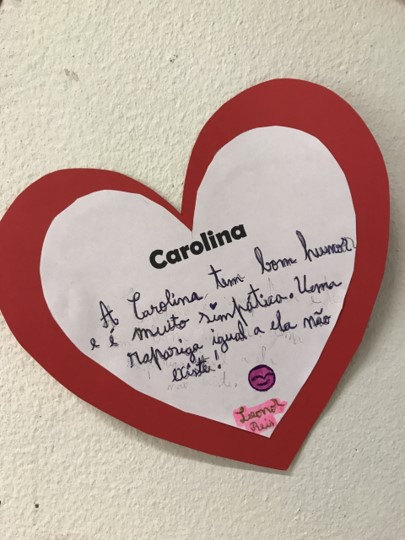 Carolina
A Carolina tem bom humor
e é muito simpática. Uma
rapariga igual a ela não
existe!
Leonor
Reis